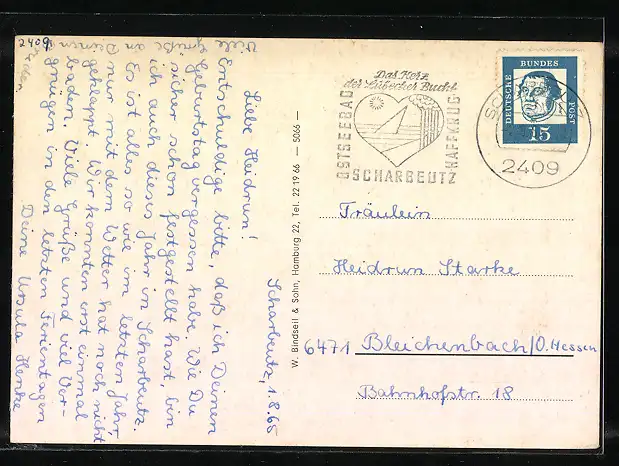 2409
Scharbeutz, 1.8.65
Liebe Heidrun!
Entschuldige bitte, daß ich Deinen
Geburtstag vergessen habe. Wie Du
sicher schon festgestellt hast, bin
ich auch dieses Jahr in Scharbeutz.
Es ist alles so wie im letzten Jahr,
nur mit dem Wetter hat noch nicht
geklappt. Wir konnten erst einmal
baden. Viele Grüße und viel Ver-
gnügen in den letzten Ferientagen
Deine Ursula Henke
Viele Grüße an Deinen
W. Bindseil & Sohn, Hamburg 22, Tel. 22 19 66 — 5066 —
Das Herz
der Lübecker Bucht
OSTSEEBAD
SCHARBEUTZ
HAFFKRUG
DEUTSCHE BUNDES POST
15
2409
Fräulein
Heidrun Starke
6471 Bleichenbach/O.Hessen
Bahnhofstr. 18